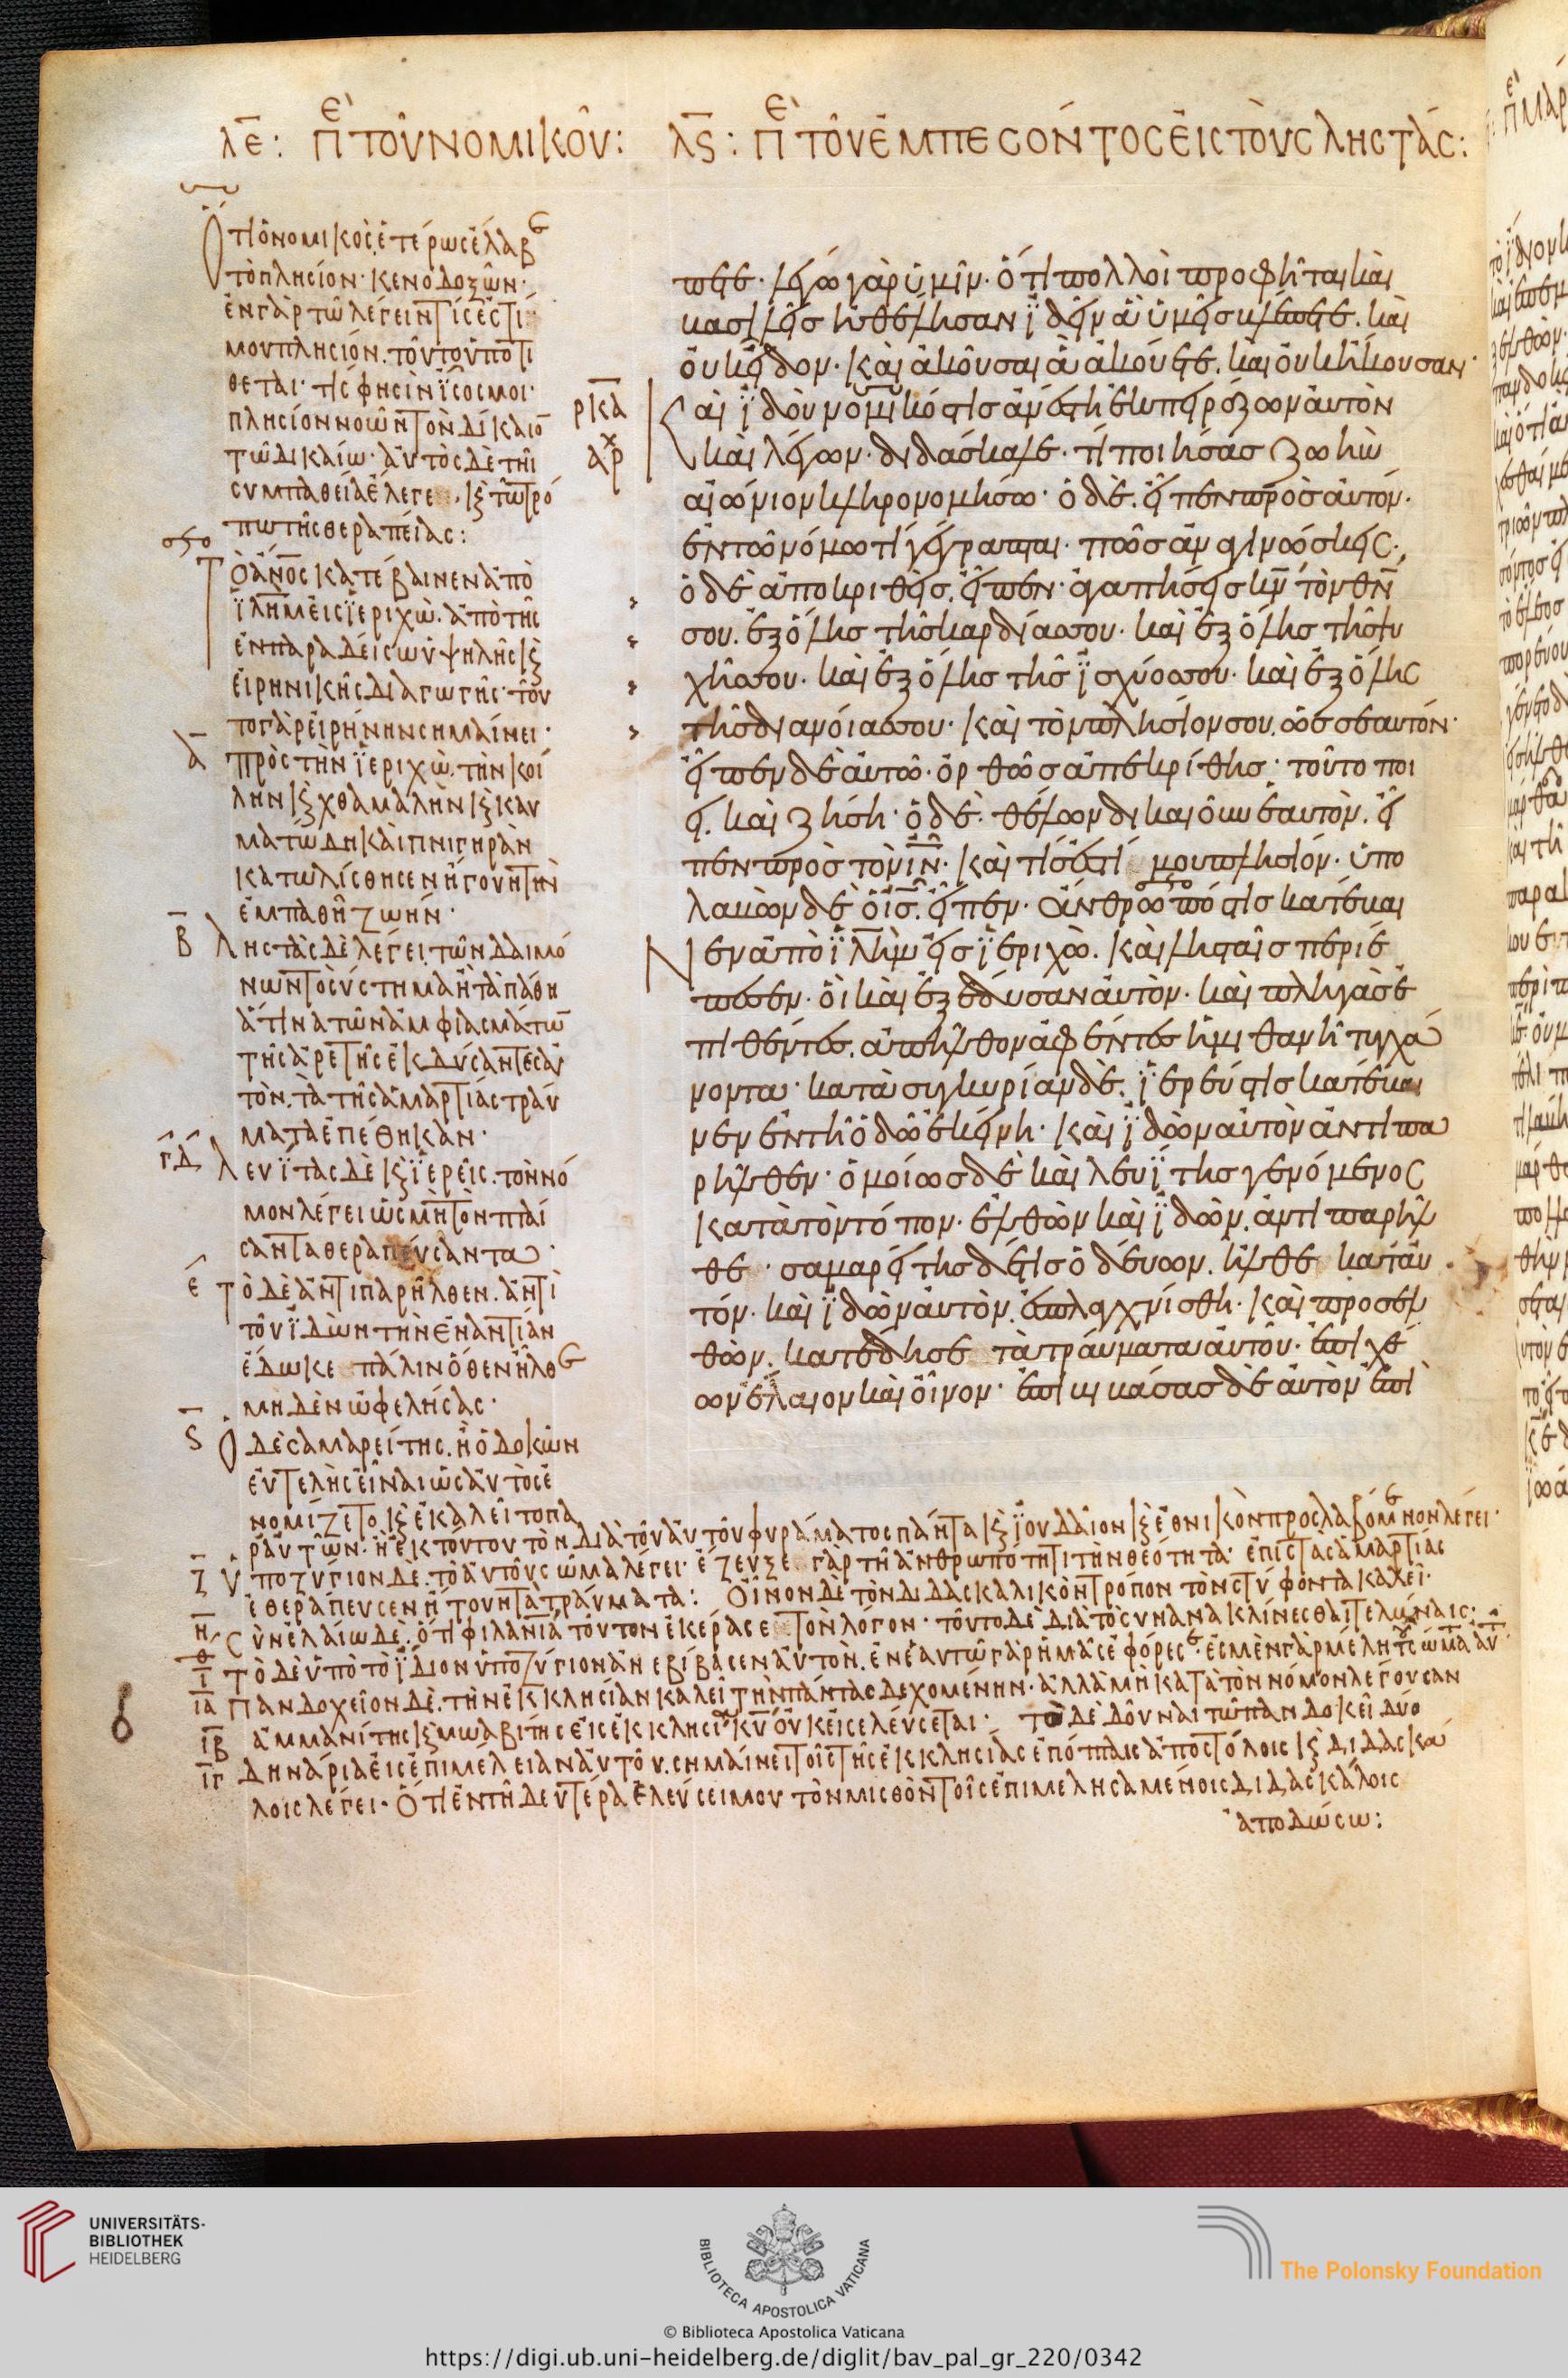 λε: πε τοῦ νομικοῦ: λϛ: πε τοῦ ἐμπεσόντος εἰς τοὺς ληστάς:
Ὅτι ὁ νομικὸς ἑτέρως ἔλαβε
τὸ πλησίον· κενοδοξῶν·
ἐν γὰρ τῶ λέγειν τίς ἐστί
μου πλησίον. τοῦτο ὑποτί
θεται· τίς φησὶν ἴσος μοι·
πλησίον νοῶν τὸν δίκαιο̅
τῶ δικαίω· αὐτὸς δὲ τῆ
συμπαθεία ἔλεγε, κ τῶ τρό
πω τῆς θεραπείας:
Ὁ ἄνο̅ς κατέβαινεν ἀπὸ
ϊλη̅μ εἰς ϊεριχὼ. ἀπὸ τῆς
ἐν παραδείσω ὑψηλῆς κ
εἰρηνικῆς διαγωγῆς· τοῦ
το γὰρ εἰρήνην σημαίνει·
α̅ πρὸς τὴν ϊεριχὼ. τὴν κοί
λην κ χθαμαλὴν κ καυ
ματώδη καὶ πνιγηρὰν
κατωλίσθησεν ἤγουν τὴν
ἐμπαθῆ ζωήν·
β̅ ληστὰς δὲ λέγει. τῶν δαιμό
νων τὸ σύστημα ἢ τὰ πάθη
ἅτινα τῶν ἀμφιασμάτω̅
τῆς ἀρετῆς ἐκδύσαντες αὐ
τὸν. τὰ τῆς ἁμαρτίας τραύ
ματα ἐπέθηκαν·
γ̅δ̅ λευΐτας δὲ κ ϊερεῖς. τὸν νό
μον λέγει ὡς μὴ τὸν παί
σαντα θεραπεύσαντα·
ε̅ τὸ δὲ ἀντιπαρῆλθεν. ἀντὶ
τοῦ ϊδὼν τὴν ἐναντίαν
ἔδωκε πάλιν ὅθεν ἦλθε
μηδὲν ὠφελήσας·
ϛ̅ Ὁ δὲ σαμαρείτης. ἢ ὁ δοκῶν
εὐτελὴς εἶναι ὡς αὐτὸς ἐ
νομίζετο κ ἐκαλεῖτο πα
ρ αὐτῶν: ἢ ἐκ τούτου τὸν διὰ τοῦ αὐτοῦ φυράματος πάντα κ ϊουδαῖον κ ἐθνικὸν προσλαβόμενον λέγει·
ζ̅ ὑποζύγιον δὲ. τὸ αὐτοῦ σῶμα λέγει· ἔζευξε γὰρ τῆ ἀνθρωπότητι τὴν θεότητα· ἐπὶ τὰς ἁμαρτίας
ἐθεράπευσεν ἤτουν τὰ τραύματα: Οἶνον δὲ τὸν διδασκαλικὸν τρόπον τὸν στύφοντα καλεῖ·
η̅ Σὺν ἐλαίω δὲ. ὅτι φιλανία τοῦτον ἐκέρασε τὸν λόγον· τοῦτο δὲ διὰ τὸ συνανακλίνεσθαι τελώναις·
ι̅ τὸ δὲ ὑπὸ τὸ ϊδιον ὑποζύγιον ἀνεβίβασεν αὐτὸν. ἐν ἑαυτῶ γὰρ ἡμᾶς ἐφόρεσε· ἐσμὲν γὰρ μέλη τ σώμα αὐ
ια̅ Πανδοχεῖον δὲ. τὴν ἐκκλησίαν καλεῖ τὴν πάντας δεχομένην· ἀλλὰ μὴ κατὰ τὸν νόμον λέγουσαν
ιβ̅ ἀμμανίτης κ μωαβίτης εἰς ἐκκλησι κυ̅ οὐκ εἰσελεύσεται· τὸ δὲ δοῦναι τῶ πανδοκεῖ δύο
ιγ̅ δηνάρια εἰς ἐπιμέλειαν αὐτοῦ. σημαίνει τοῖς τῆς ἐκκλησίας ἐπόπταις ἀποστόλοις κ διδασκά
λοις λέγει· Ὅτι ἐν τῆ δευτέρα ἐλεύσει μου τὸν μισθὸν τοῖς ἐπιμελησαμένοις διδασκάλοις
ἀποδώσω:
πετε· λέγω γὰρ ὑμῖν· ὅτι πολλοὶ προφῆται καὶ
βασιλεῖς ἠθέλησαν ϊδεῖν ἃ ὑμεῖς βλέπετε. καὶ
οὐκ εἶδον· καὶ ἀκοῦσαι ἃ ἀκούετε. καὶ οὐκ ἤκουσαν·
ρκα αἱ ϊδοὺ νομικός τις ἀνέστη ἐκπειράζων αὐτὸν
καὶ λέγων· διδάσκαλε· τί ποιήσας ζωὴν
αἰώνιον κληρονομήσω· ὁ δὲ. εἶπεν πρὸς αὐτόν·
ἐν τῶ νόμω τί γέγραπται· πῶς ἀναγινώσκεις·
ὁ δὲ ἀποκριθεὶς. εἶπεν· ἀγαπήσεις κν̅ τὸν θν̅
σου. ἐξ ὅλης τῆς καρδίας σου· καὶ ἐξ ὅλης τῆς ψυ
χῆς σου· καὶ ἐξ ὅλης τῆς ϊσχύος σου· καὶ ἐξ ὅλης
τῆς διανοίας σου· καὶ τὸν πλησίον σου. ὡς σεαυτόν·
εἶπεν δὲ αὐτῶ· ὀρθῶς ἀπεκρίθης· τοῦτο ποί
ει. καὶ ζήση· ὁ δὲ. θέλων δικαιοῦν ἑαυτὸν. εἶ
πεν πρὸς τὸν ι̅ν̅· καὶ τίς ἐστί μου πλησίον· ὑπο
λαβὼν δὲ ὁ ι̅ς̅. εἶπεν· ἄνθρωπός τις κατέβαι
νεν ἀπὸ ϊλη̅μ εἰς ϊεριχὼ. καὶ λησταῖς περιέ
πεσεν· οἳ καὶ ἐξεδυσαν αὐτὸν· καὶ πληγὰς ἐ
πιθέντες. ἀπῆλθον ἀφέντες ἡμιθανῆ τυγχά
νοντα· κατὰ συγκυρίαν δὲ. ϊερεύς τις κατέβαι
νεν ἐν τῆ ὁδῶ ἐκείνη· καὶ ϊδὼν αὐτὸν ἀντιπα
ρῆλθεν· ὁμοίως δὲ καὶ λευΐτης γενόμενος
κατὰ τὸν τόπον· ἐλθὼν καὶ ϊδὼν. ἀντιπαρῆλ
θε· σαμαρείτης δέ τις ὁδεύων. ἦλθε κατ αὐ
τόν· καὶ ϊδὼν αὐτὸν. ἐσπλαγχνίσθη· καὶ προσελ
θὼν. κατέδησε τὰ τραύματα αὐτοῦ· ἐπιχέ
ων ἔλαιον καὶ οἶνον· ἐπιβιβάσας δὲ αὐτὸν ἐπὶ
UNIVERSITÄTS-
BIBLIOTHEK
HEIDELBERG
BIBLIOTECA APOSTOLICA VATICANA
The Polonsky Foundation
© Biblioteca Apostolica Vaticana
https://digi.ub.uni-heidelberg.de/diglit/bav_pal_gr_220/0342